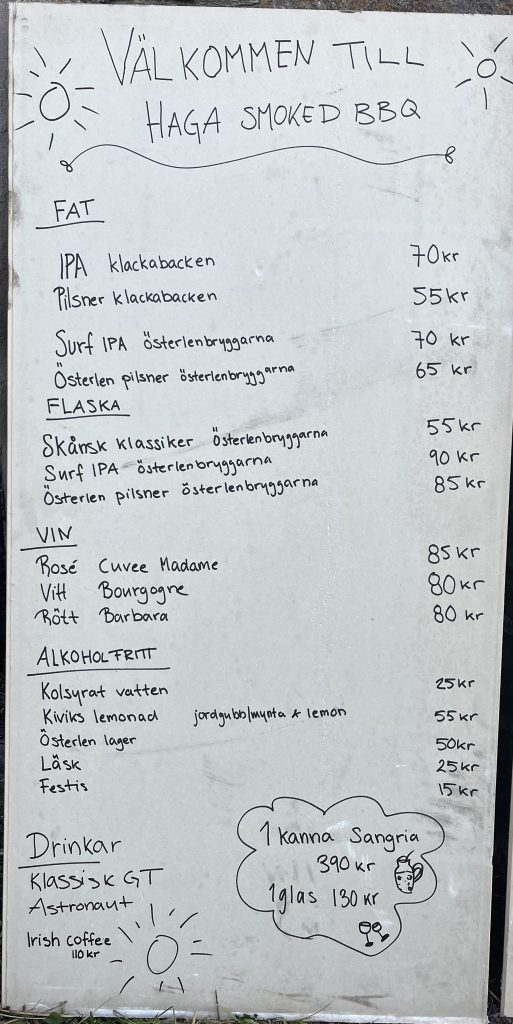 VÄLKOMMEN TILL
HAGA SMOKED BBQ
FAT
IPA klackabacken 70kr
Pilsner klackabacken 55kr
Surf IPA österlenbryggarna 70 kr
Österlen pilsner österlenbryggarna 65 kr
FLASKA
Skånsk klassiker österlenbryggarna 55kr
Surf IPA österlenbryggarna 90 kr
Österlen pilsner österlenbryggarna 85 kr
VIN
Rosé Cuvee Madame 85kr
Vitt Bourgogne 80kr
Rött Barbara 80 kr
ALKOHOLFRITT
Kolsyrat vatten 25kr
Kiviks lemonad jordgubb/mynta & lemon 55kr
Österlen lager 50kr
Läsk 25kr
Festis 15kr
Drinkar
Klassisk GT
Astronaut
Irish coffee
110kr
1 kanna Sangria
390 kr
1glas 130 kr